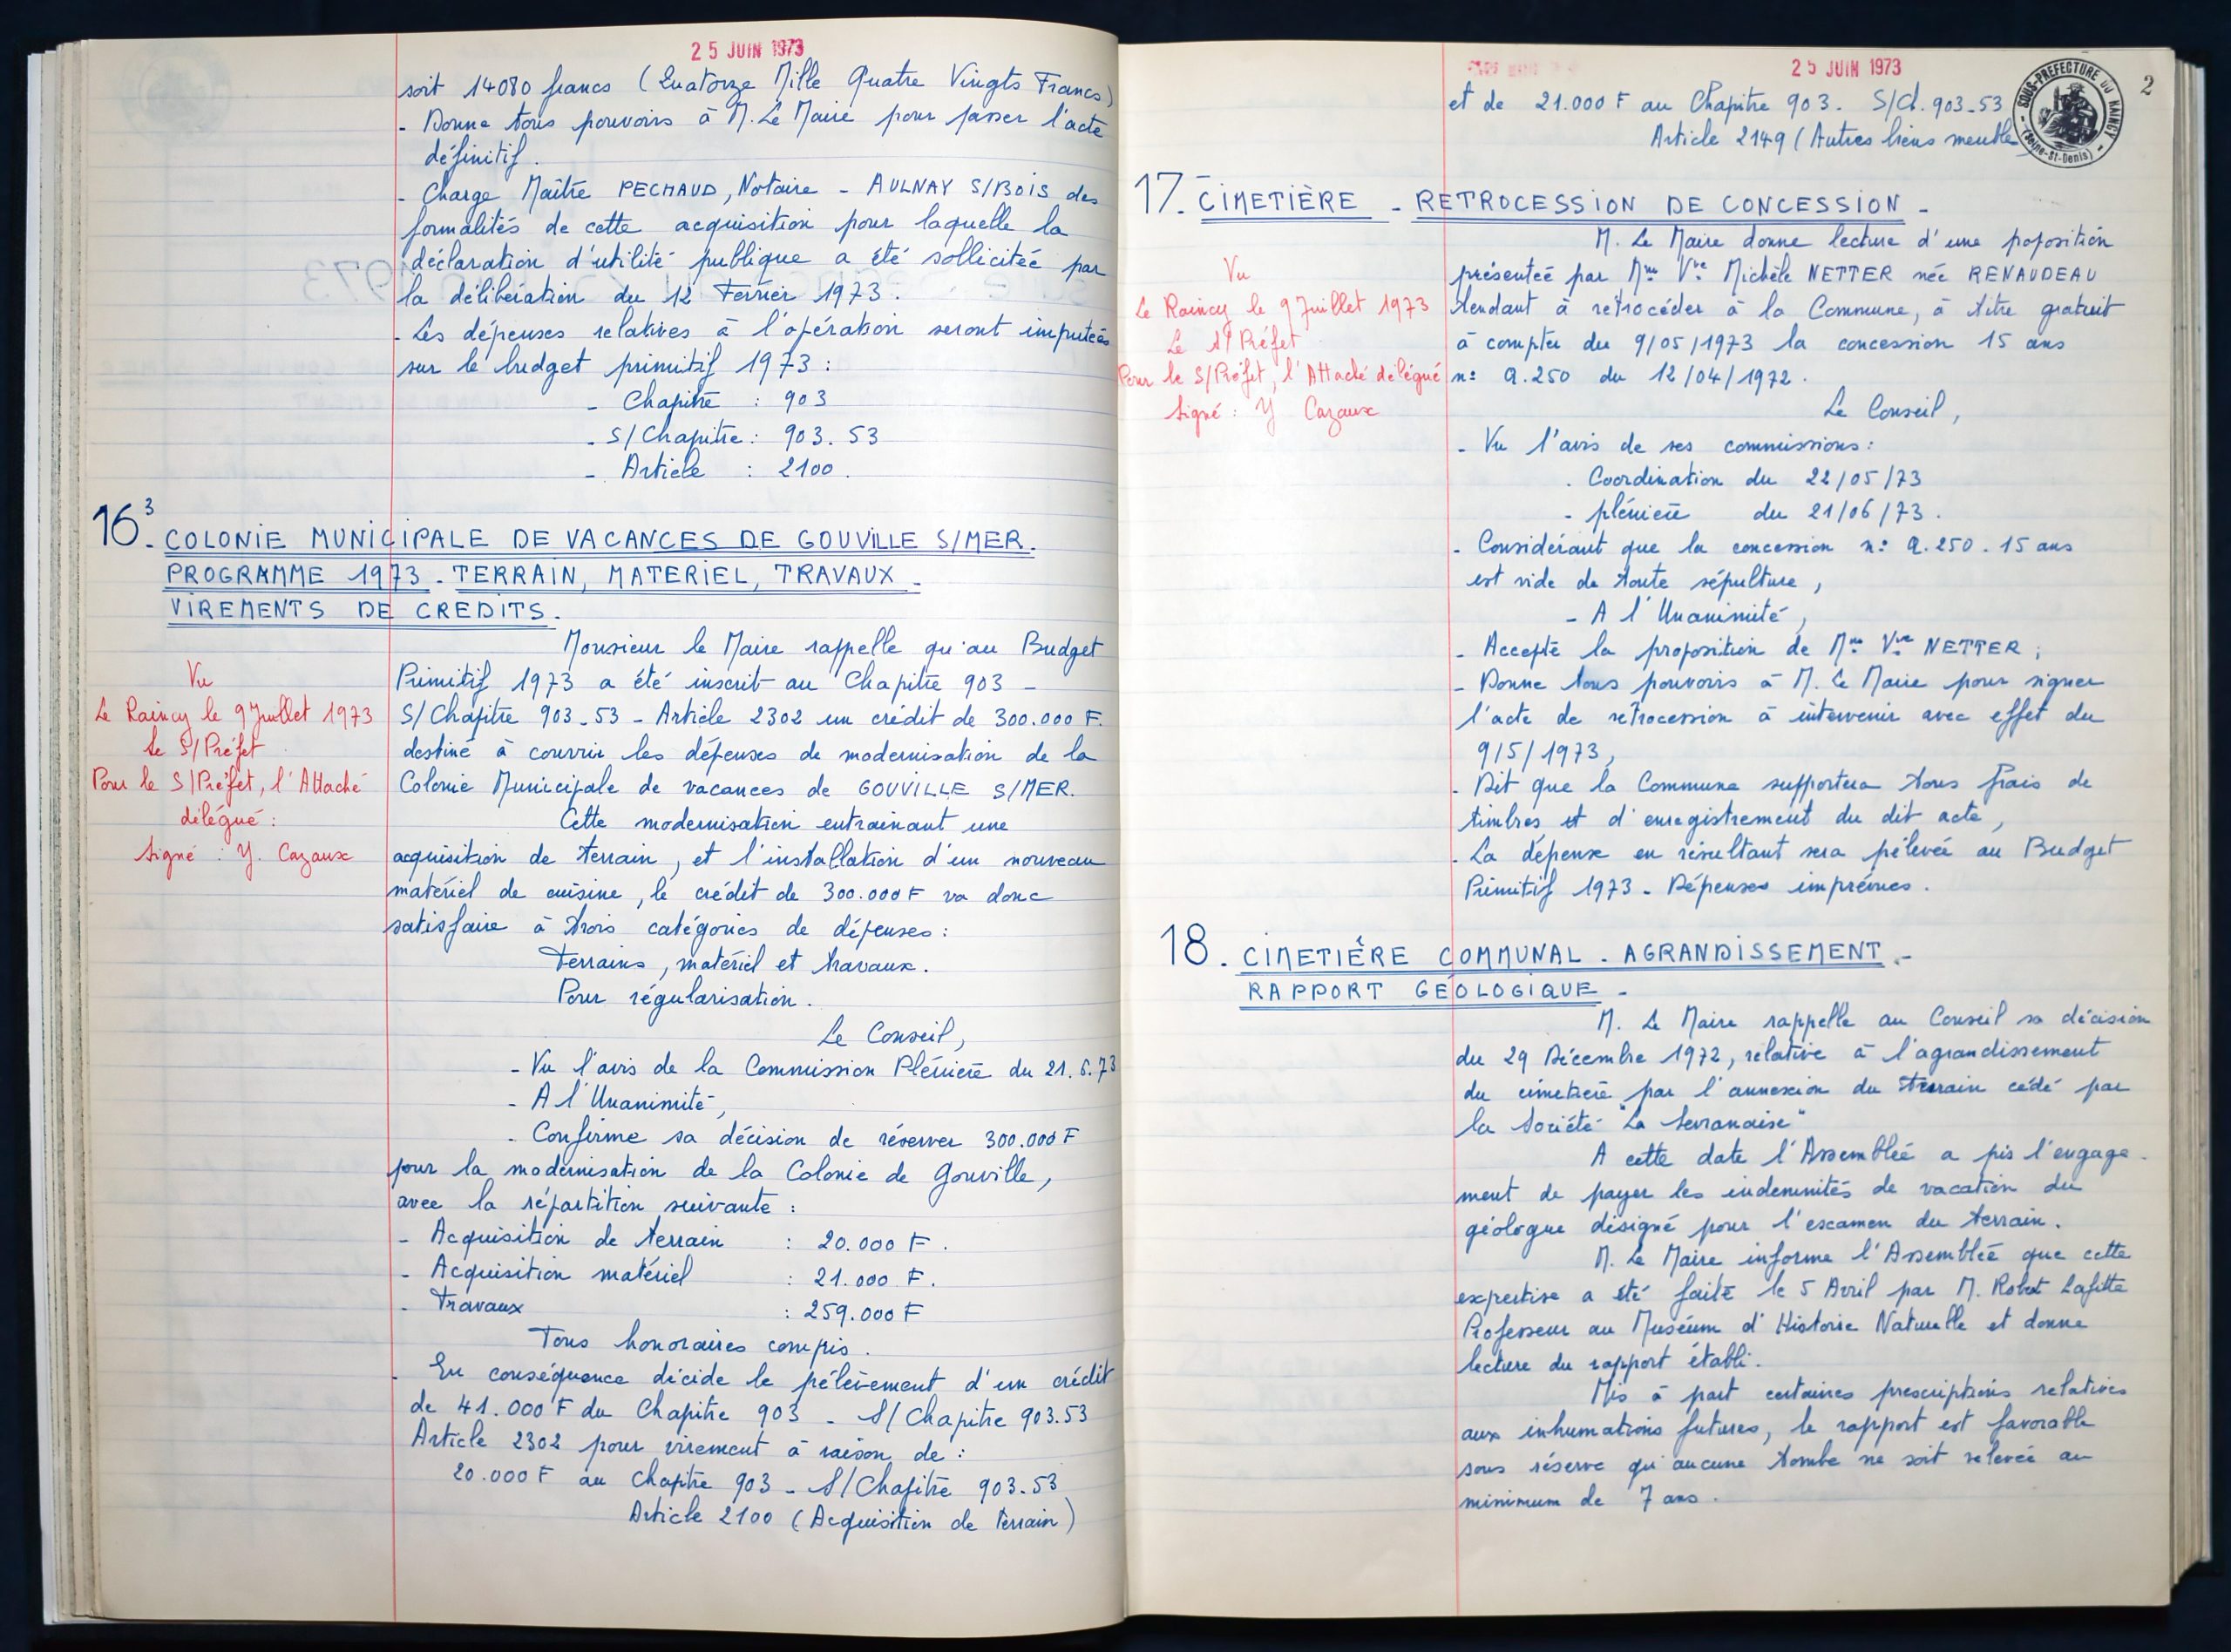 25 JUIN 1973
soit 14080 francs (Quatorze Mille Quatre Vingts Francs)
- Donne tous pouvoirs à M. Le Maire pour passer l'acte
définitif.
- Charge Maître PECHAUD, Notaire - AULNAY S/BOIS des
formalités de cette acquisition pour laquelle la
déclaration d'utilité publique a été sollicitée par
la délibération du 12 Février 1973.
- Les dépenses relatives à l'opération seront imputées
sur le budget primitif 1973 :
- Chapitre : 903
- S/Chapitre : 903.53
- Article : 2100.
16³. COLONIE MUNICIPALE DE VACANCES DE GOUVILLE S/MER.
PROGRAMME 1973 - TERRAIN, MATERIEL, TRAVAUX -
VIREMENTS DE CREDITS.
Monsieur le Maire rappelle qu'au Budget
Primitif 1973 a été inscrit au Chapitre 903 -
S/Chapitre 903.53 - Article 2302 un crédit de 300.000 F.
destiné à couvrir les dépenses de modernisation de la
Colonie Municipale de vacances de GOUVILLE S/MER.
Cette modernisation entrainant une
acquisition de terrain, et l'installation d'un nouveau
matériel de cuisine, le crédit de 300.000 F va donc
satisfaire à trois catégories de dépenses :
Terrains, matériel et travaux.
Pour régularisation.
Le Conseil,
- Vu l'avis de la Commission Plénière du 21.6.73
- A l'Unanimité,
- Confirme sa décision de réserver 300.000 F
pour la modernisation de la Colonie de Gouville,
avec la répartition suivante :
- Acquisition de terrain : 20.000 F.
- Acquisition matériel : 21.000 F.
- Travaux : 259.000 F
Tous honoraires compris.
- En conséquence décide le prélèvement d'un crédit
de 41.000 F du Chapitre 903 - S/Chapitre 903.53
Article 2302 pour virement à raison de :
20.000 F au Chapitre 903 - S/Chapitre 903.53
Article 2100 (Acquisition de terrain)
Vu
Le Raincy le 9 Juillet 1973
Le S/Préfet
Pour le S/Préfet, l'Attaché
délégué :
Signé : Y. Cazaux
25 JUIN 1973
2
SOUS-PREFECTURE DU RAINCY
(Seine-St-Denis)
et de 21.000 F au Chapitre 903. S/Ch. 903-53
Article 2149 (Autres biens meubles
17. CIMETIÈRE - RETROCESSION DE CONCESSION -
M. Le Maire donne lecture d'une poposition
présenteé par Mme Vve Michèle NETTER née RENAUDEAU
tendant à rétrocéder à la Commune, à titre gratuit
à compter du 9/05/1973 la concession 15 ans
n° Q.250 du 12/04/1972.
Le Conseil,
- Vu l'avis de ses commissions :
. Coordination du 22/05/73
- plénière du 21/06/73.
- Considérant que la concession n° Q.250. 15 ans
est vide de toute sépulture,
- A l'Unanimité,
- Accepte la proposition de Mme Vve NETTER ;
- Donne tous pouvoirs à M. Le Maire pour signer
l'acte de rétrocession à intervenir avec effet du
9/5/1973,
- Dit que la Commune supportera tous frais de
timbres et d'enregistrement du dit acte,
- La dépense en résultant sera prélevée au Budget
Primitif 1973 - Dépenses imprévues.
Vu
Le Raincy le 9 Juillet 1973
Le S/Préfet
Pour le S/Préfet, l'Attaché délégué
Signé : Y Cazaux
18. CIMETIÈRE COMMUNAL - AGRANDISSEMENT -
RAPPORT GÉOLOGIQUE -
M. Le Maire rappelle au Conseil sa décision
du 29 Décembre 1972, relative à l'agrandissement
du cimetière par l'annexion du terrain cédé par
la Société "La Sevranaise"
A cette date l'Assemblée a pris l'engage-
ment de payer les indemnités de vacation du
géologue désigné pour l'examen du terrain.
M. Le Maire informe l'Assemblée que cette
expertise a été faite le 5 Avril par M. Robert Lafitte
Professeur au Muséum d'Histoire Naturelle et donne
lecture du rapport établi.
Mis à part certaines prescriptions relatives
aux inhumations futures, le rapport est favorable
sous réserve qu'aucune tombe ne soit relevée au
minimum de 7 ans.